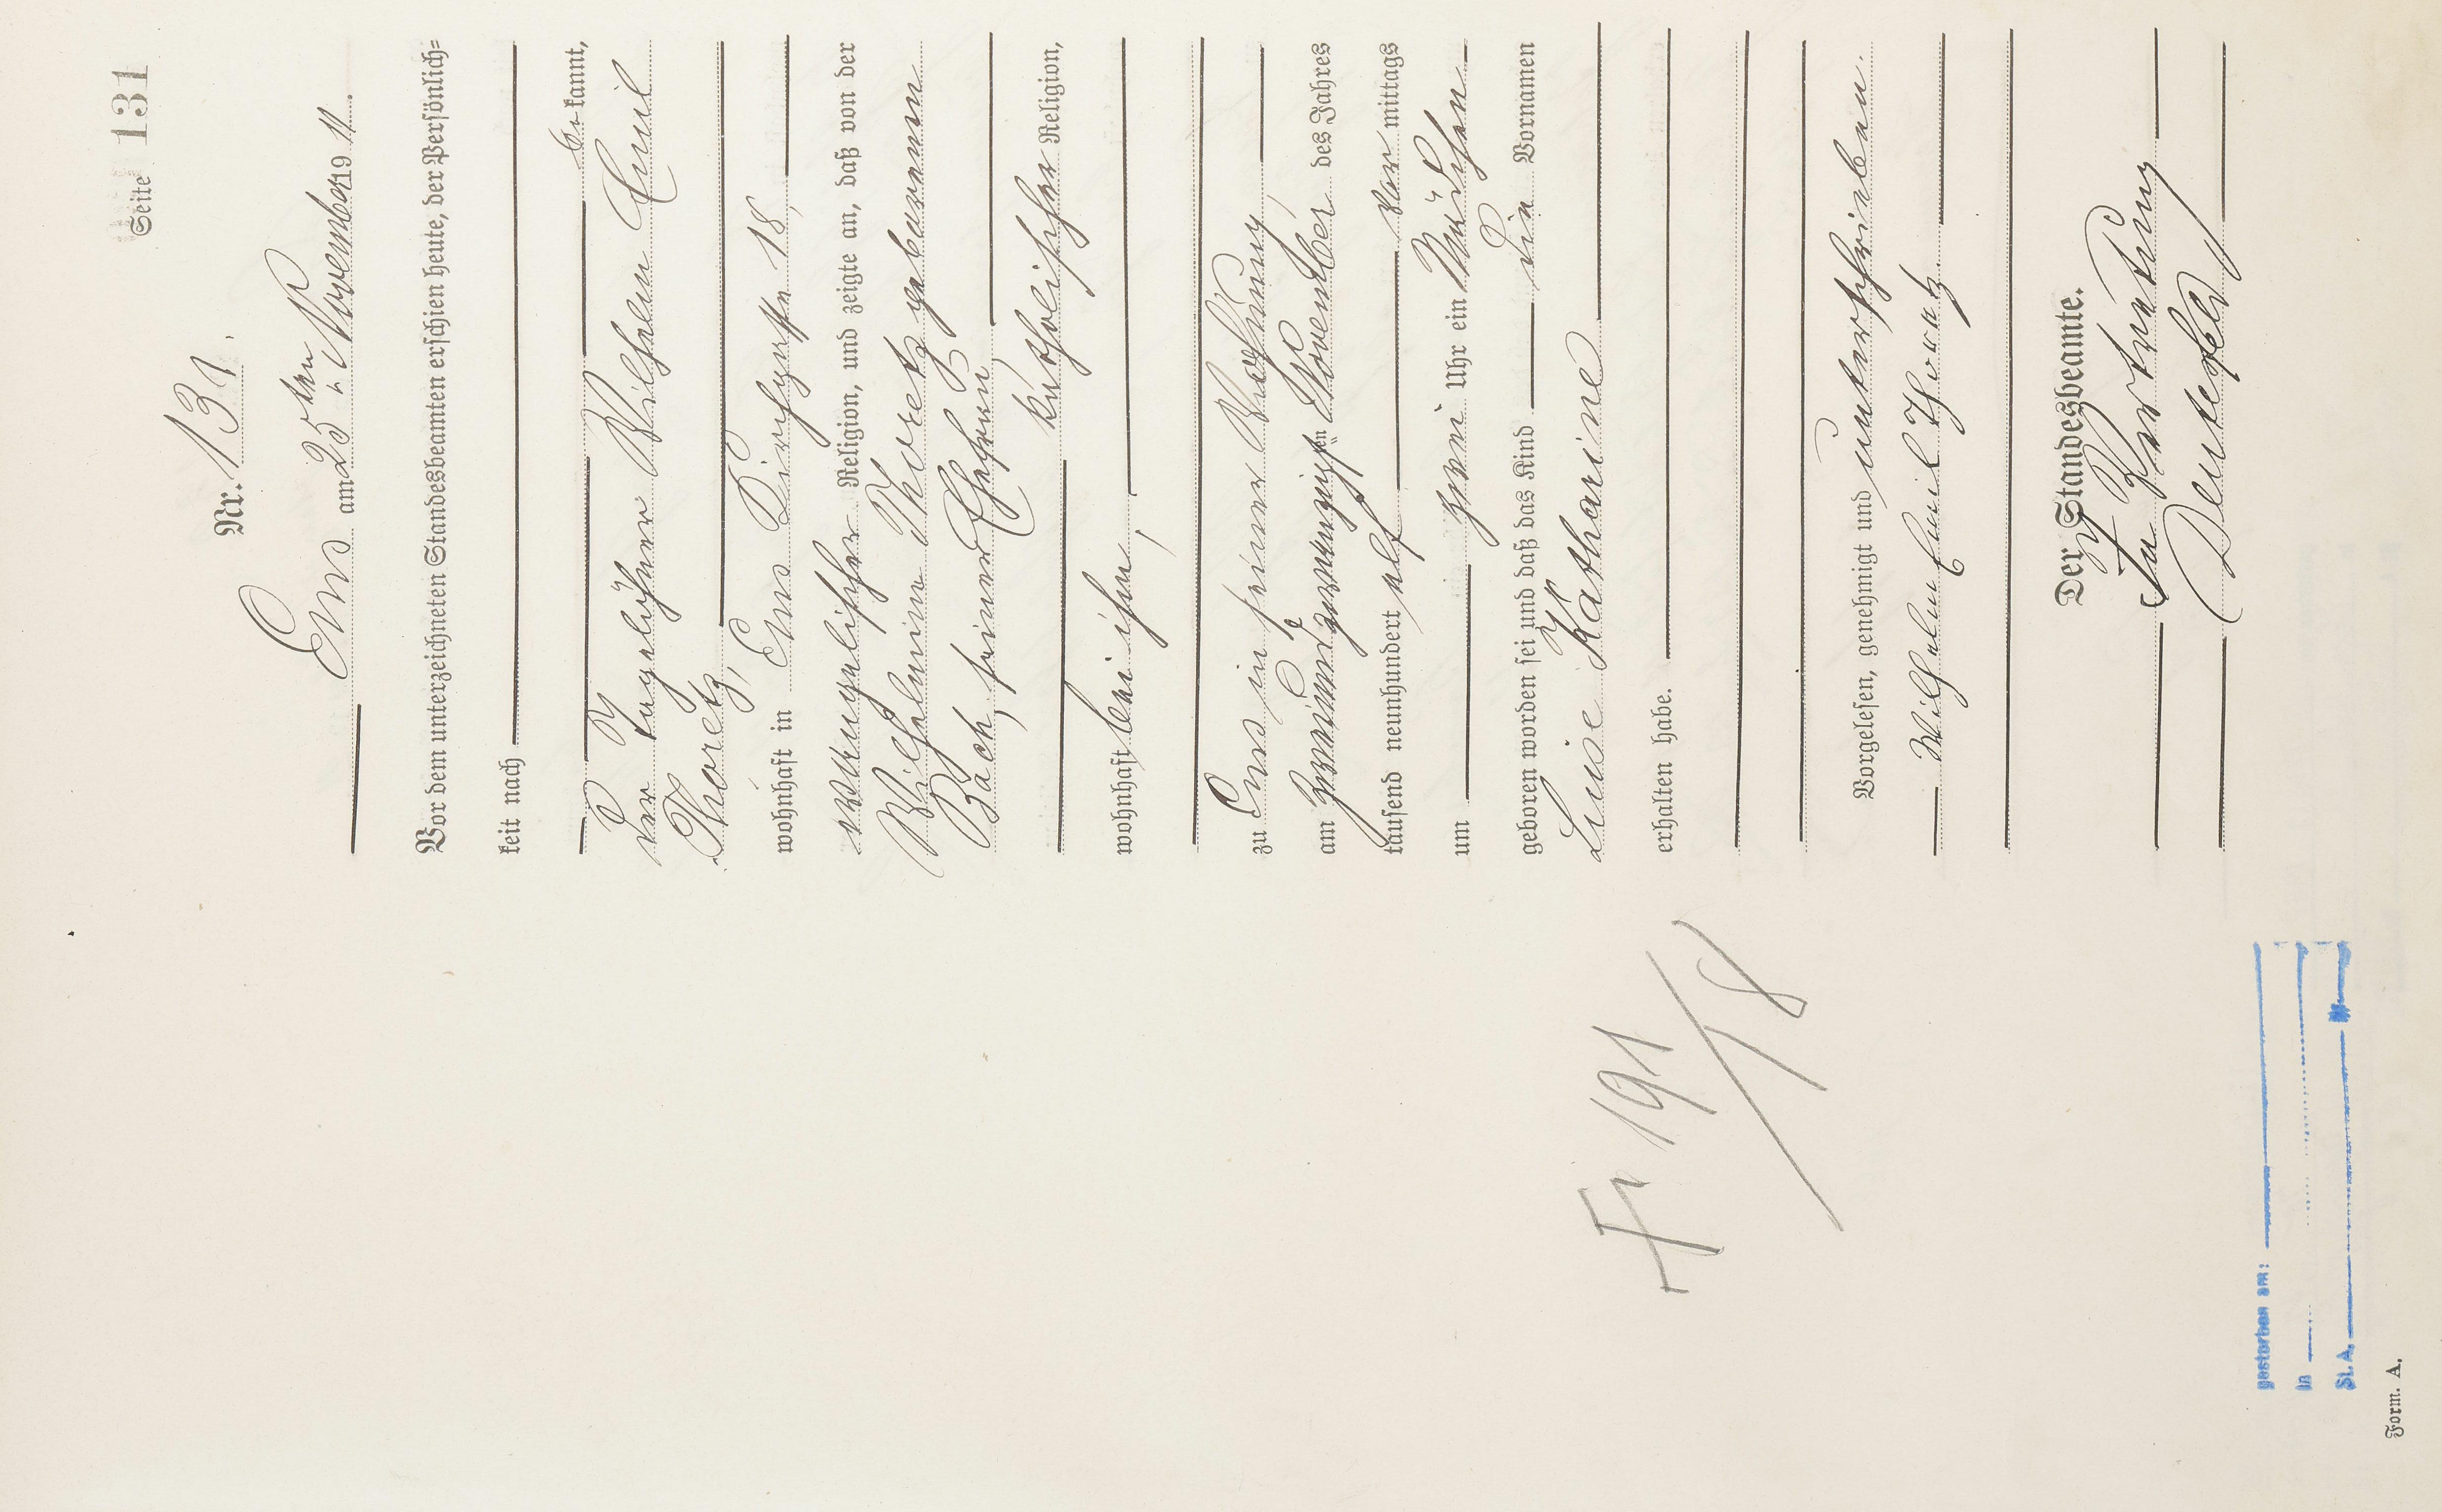 Seite 131
Nr. 131.
Ems am 25ten November 1911.
Vor dem unterzeichneten Standesbeamten erschien heute, der Persönlich=
keit nach
be kannt,
der Tagelöhner Wilhelm Emil
Thoretz,
wohnhaft in Ems Kirchgasse 18,
evangelischer Religion, und zeigte an, daß von der
Wilhelmine Thoretz geborenen
Bach, seiner Ehefrau,
katholischer Religion,
wohnhaft bei ihm,
zu Ems in seiner Wohnung,
am zweiundzwanzigsten November des Jahres
tausend neunhundert elf vor mittags
um zwei Uhr ein Mädchen
geboren worden sei und daß das Kind die Vornamen
Luise Katharine
erhalten habe.
Vorgelesen, genehmigt und unterschrieben.
Wilhelm Emil Thoretz.
Der Standesbeamte.
In Vertretung
Fr 191/18
gestorben am:
in
St. A.
Form. A.